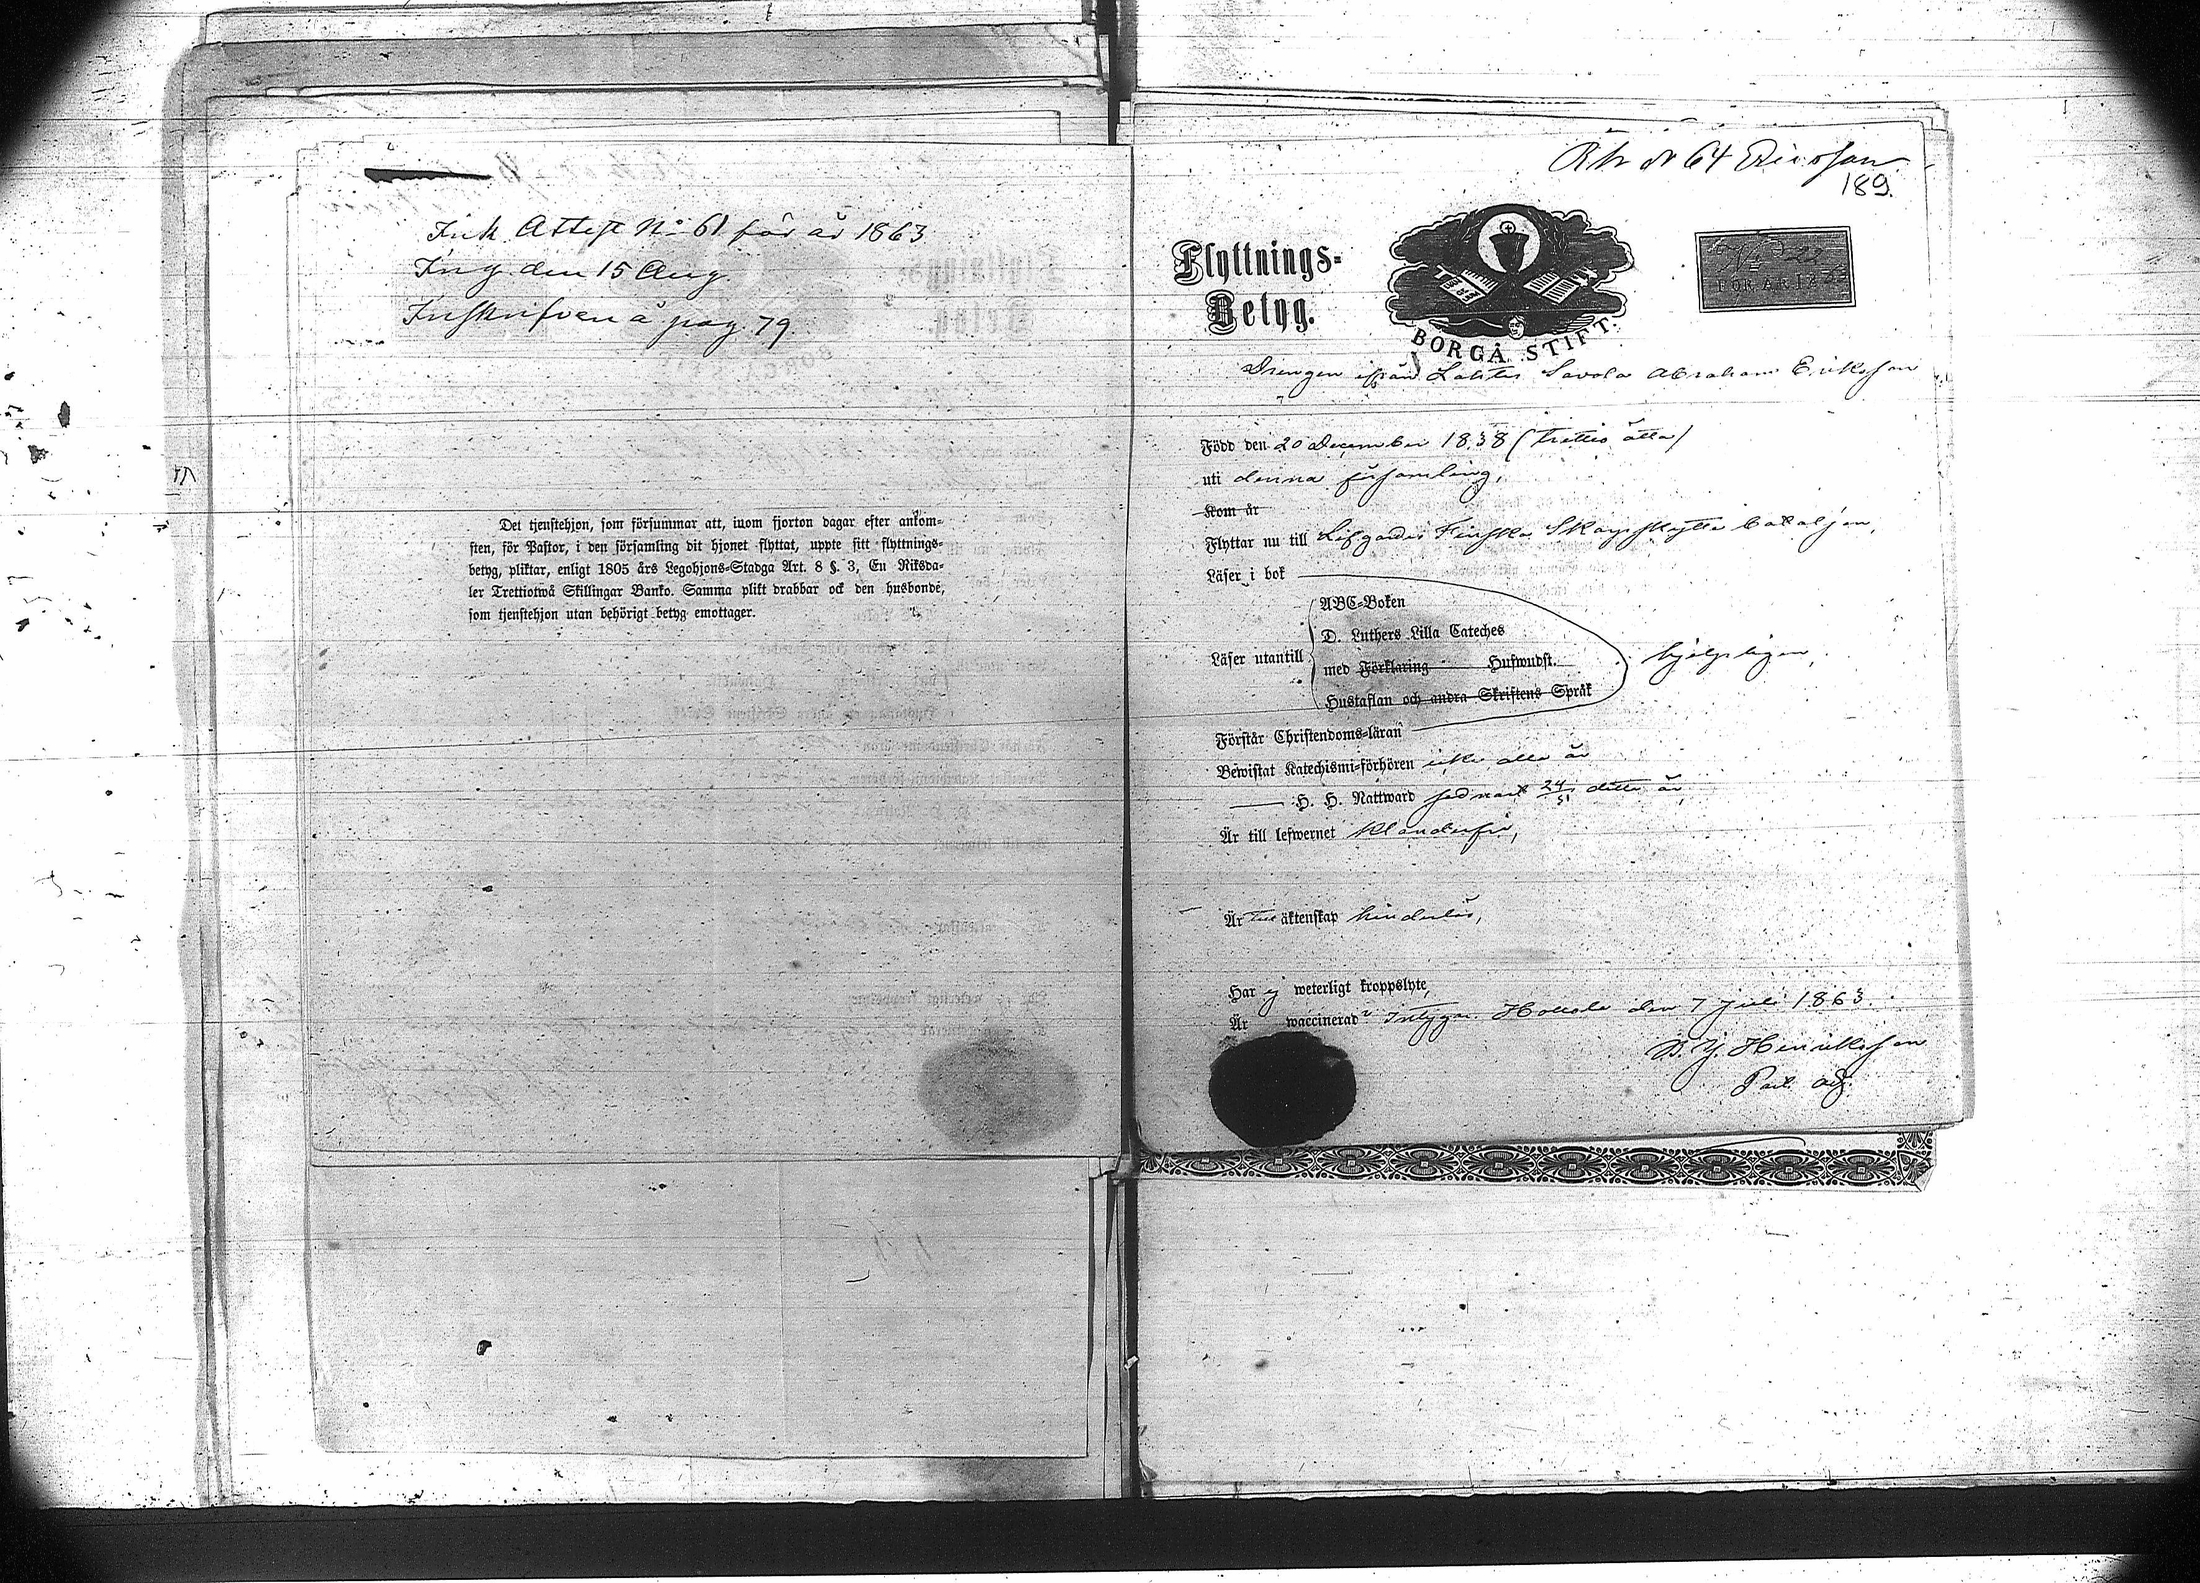 Ink Attest No 61 för år 1863
Ing. den 15 Aug.
Inskrifven å pag. 79
Det tjenstehjon, som försummar att, inom fjorton dagar efter ankom-
sten, för Pastor, i den församling dit hjonet flyttat, uppte sitt flyttnings-
betyg, pliktar, enligt 1805 års Legohjons-Stadga Art. 8 §. 3, En Riksda-
ler Trettiotwå Skillingar Banko. Samma plikt drabbar ock den husbonde,
som tjenstehjon utan behörigt betyg emottager.
N 64 Ericsson
189.
Flyttnings-
Betyg.
BORGÅ STIFT.
FÖR ÅR 1863
Drengen ifrån Lahtis Savola Abraham Eriksson
Född den 20 December 1838 (trettio åtta)
uti denna församling,
Kom år
Flyttar nu till Lifgardes Finska Skarpskytte bataljon,
Läser i bok
ABC-Boken
D. Luthers Lilla Cateches
Läser utantill
med Förklaring Hufwudst.
Hustaflan och andra Skriftens Språk
hjelpligen,
Förstår Christendoms-läran
Bewistat Katechismi-förhören icke alla år
H. H. Nattward sednast 24/5 detta år,
Är till lefwernet klanderfri,
Är till äktenskap hinderlös,
Har ej weterligt kroppslyte,
Är waccinerad, Intygar. Hollola den 7 juli 1863.
Henriksson
Past. adj.